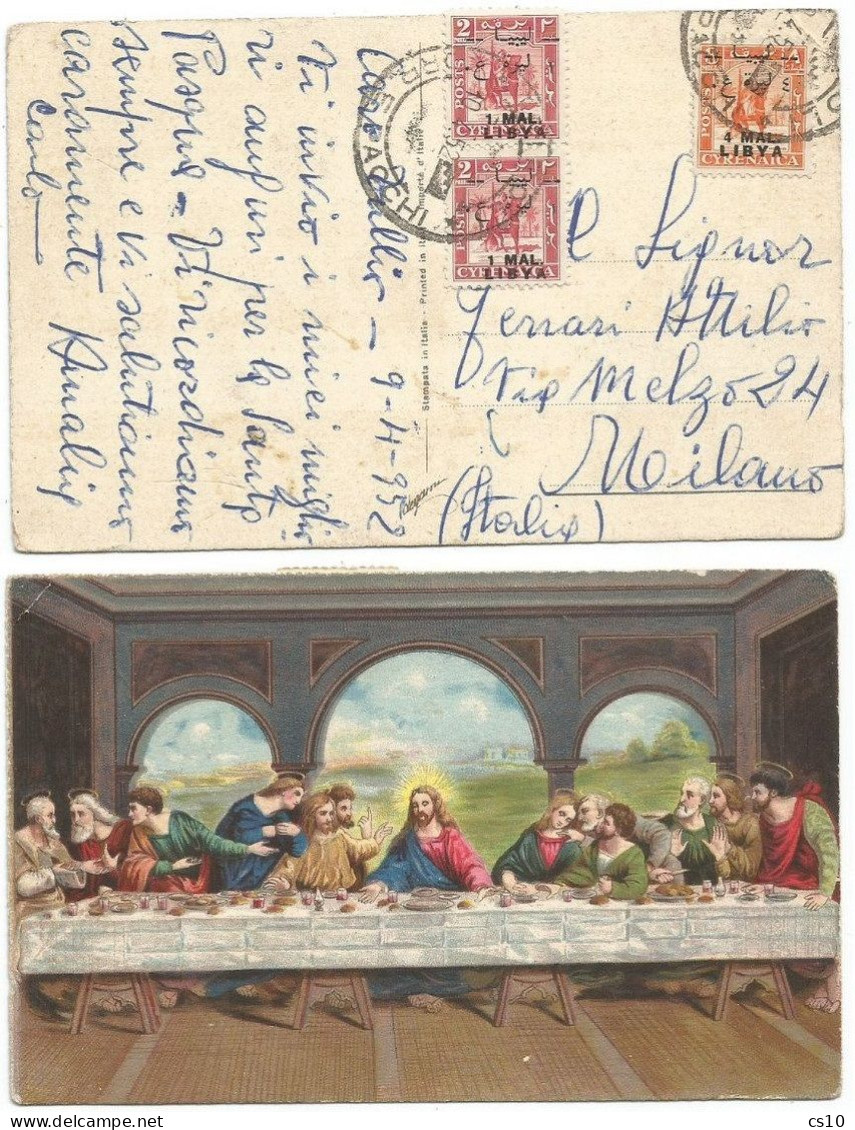 Caro Tullio - 9-4-952
Vi invio i miei miglio
ri auguri per la Santa
Pasqua - Vi ricordiamo
sempre e vi salutiamo
caramente Amalia
Carlo
Stampata in Italia - Printed in Italy - Importé d'Italie
2 POSTS 2
CYRENAICA
1 MAL.
LIBYA
ليبيا
2 POSTS 2
CYRENAICA
1 MAL.
LIBYA
ليبيا
POSTS
CYRENAICA
4 MAL.
LIBYA
ليبيا
Al Signor
Ferrari Attilio
Via Melzo 24
Milano
(Italia)
cs10